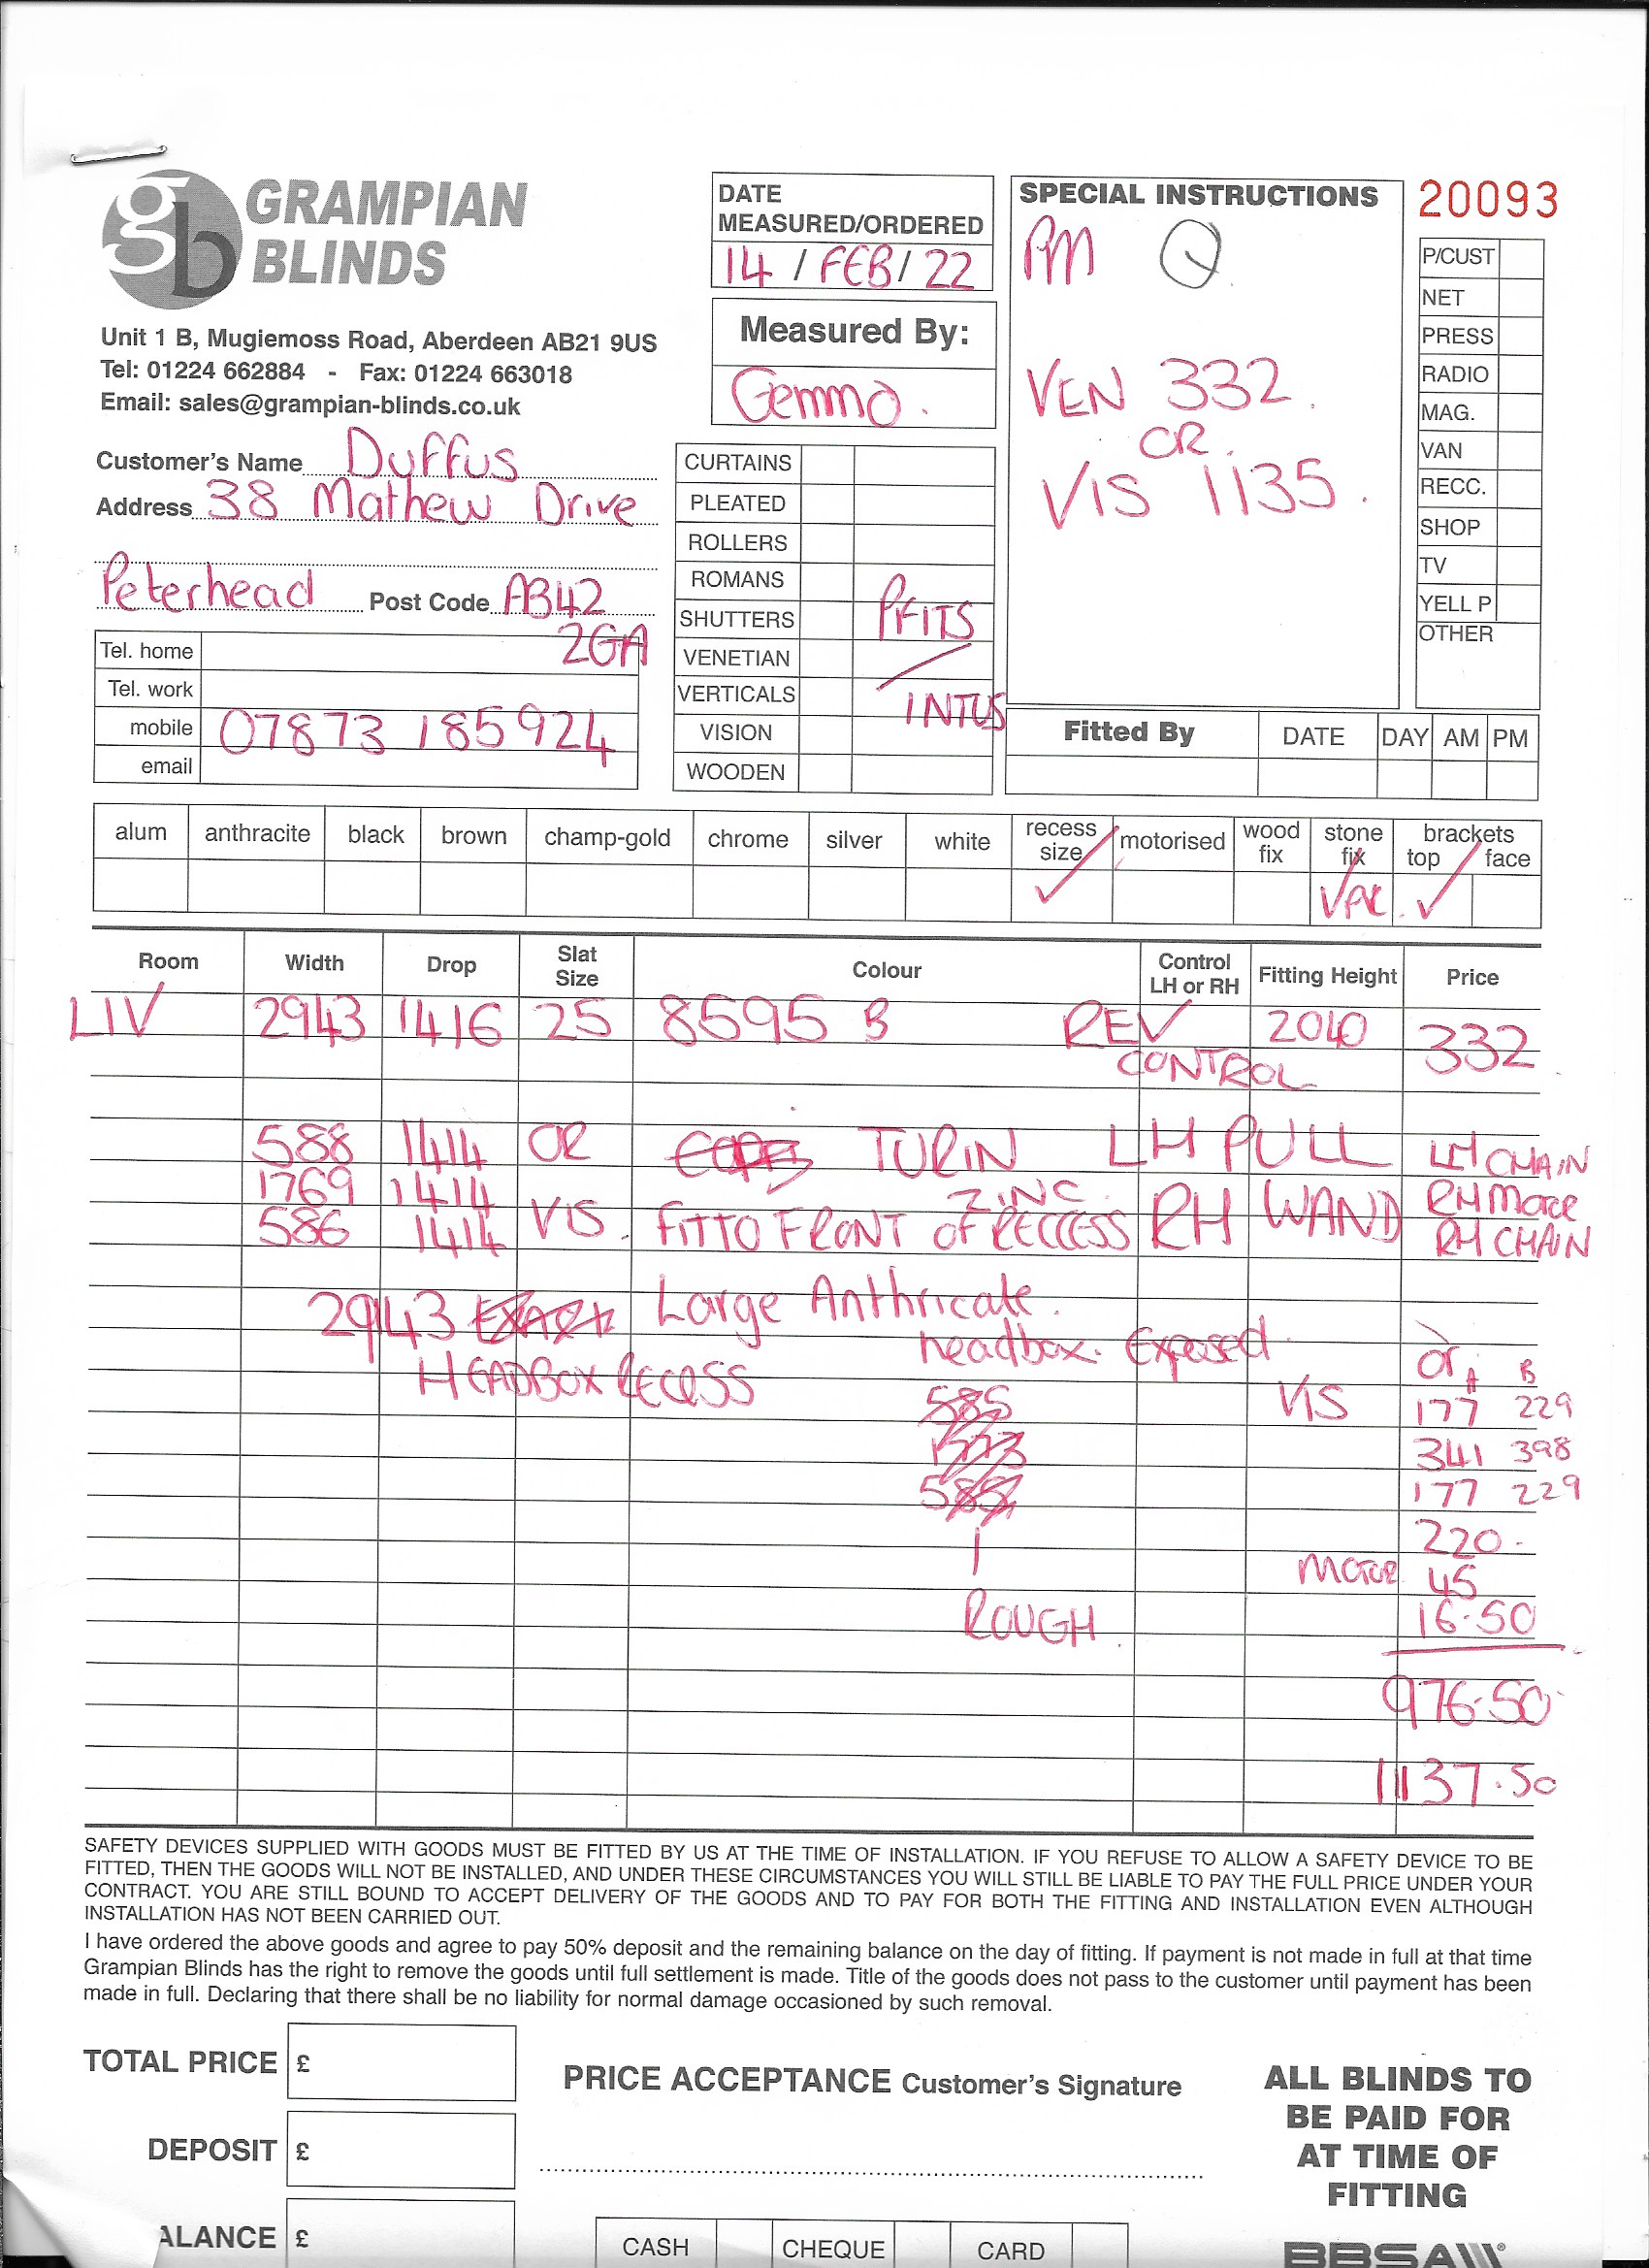 GRAMPIAN
BLINDS
Unit 1 B, Mugiemoss Road, Aberdeen AB21 9US
Tel: 01224 662884 - Fax: 01224 663018
Email: sales@grampian-blinds.co.uk
DATE
MEASURED/ORDERED
14 / FEB / 22
Measured By:
Gemma.
SPECIAL INSTRUCTIONS
PM Q
VEN 332.
OR.
VIS 1135.
20093
P/CUST
NET
PRESS
RADIO
MAG.
VAN
RECC.
SHOP
TV
YELL P
OTHER
Customer's Name Duffus
Address 38 Mathew Drive
Peterhead Post Code AB42
2GA
Tel. home
Tel. work
mobile 07873 185924
email
CURTAINS
PLEATED
ROLLERS
ROMANS
SHUTTERS PFITS
VENETIAN /
VERTICALS INTUS
VISION
WOODEN
Fitted By DATE DAY AM PM
alum anthracite black brown champ-gold chrome silver white recess size motorised wood fix stone fix brackets top face
✓ VPVC. ✓
Room Width Drop Slat Size Colour Control LH or RH Fitting Height Price
LIV 2943 1416 25 8595 B REV 2040 332
CONTROL
588 1414 OR TURIN LH PULL LH CHAIN
1769 1414 ZINC RH MOTOR
586 1414 VIS. FIT TO FRONT OF RECCESS RH WAND RH CHAIN
2943 EXACT Large Anthricate.
headbox. Exposed
HEADBOX RECESS or A B
585 VIS 177 229
1773 341 398
585 177 229
220.
MOTOR 45
ROUGH. 16.50
976.50
1137.50
SAFETY DEVICES SUPPLIED WITH GOODS MUST BE FITTED BY US AT THE TIME OF INSTALLATION. IF YOU REFUSE TO ALLOW A SAFETY DEVICE TO BE
FITTED, THEN THE GOODS WILL NOT BE INSTALLED, AND UNDER THESE CIRCUMSTANCES YOU WILL STILL BE LIABLE TO PAY THE FULL PRICE UNDER YOUR
CONTRACT. YOU ARE STILL BOUND TO ACCEPT DELIVERY OF THE GOODS AND TO PAY FOR BOTH THE FITTING AND INSTALLATION EVEN ALTHOUGH
INSTALLATION HAS NOT BEEN CARRIED OUT.
I have ordered the above goods and agree to pay 50% deposit and the remaining balance on the day of fitting. If payment is not made in full at that time
Grampian Blinds has the right to remove the goods until full settlement is made. Title of the goods does not pass to the customer until payment has been
made in full. Declaring that there shall be no liability for normal damage occasioned by such removal.
TOTAL PRICE £
DEPOSIT £
ALANCE £
PRICE ACCEPTANCE Customer's Signature
CASH CHEQUE CARD
ALL BLINDS TO
BE PAID FOR
AT TIME OF
FITTING
BBSA